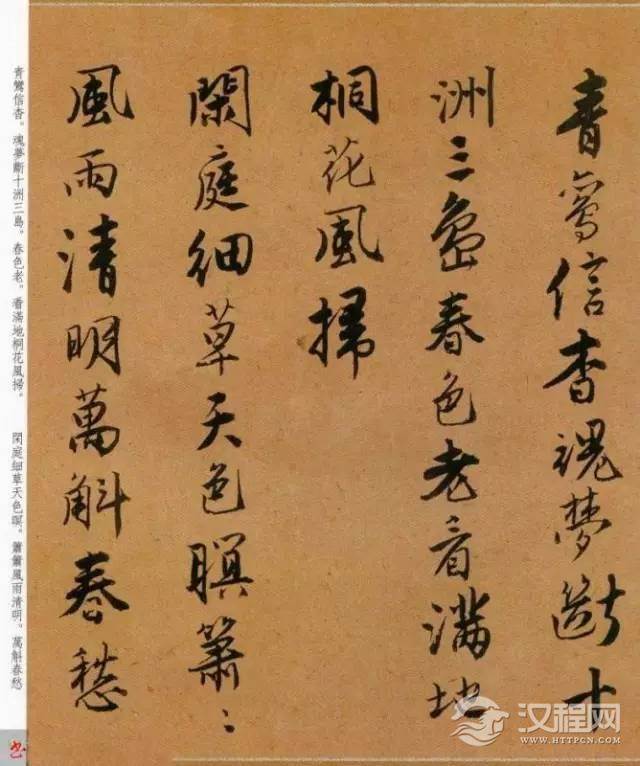 青鸞信杳魂夢斷十
洲三島春色老看滿地
桐花風掃
閑庭細草天色暝簫〻
風雨清明萬斛春愁
青鸞信杳。魂夢斷十洲三島。春色老。看滿地桐花風掃。
閑庭細草天色暝。簫簫風雨清明。萬斛春愁
汉程网
WWW.HTTPCN.COM